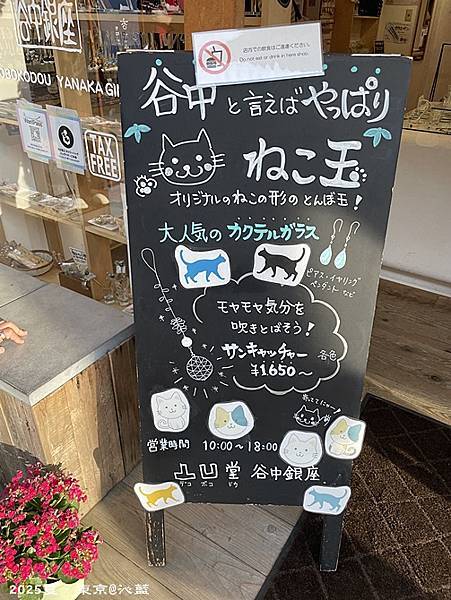 谷中銀座
OBOKODOU YANAKA GIN
TAX
FREE
店内での飲食はご遠慮ください。
Do not eat or drink in here shop.
谷中と言えばやっぱり
ねこ玉
オリジナルのねこの形のとんぼ玉！
大人気のカクテルガラス
ピアス・イヤリング
ペンダントなど
モヤモヤ気分を
吹きとばそう！
サンキャッチャー 各色
¥1650～
寄ってにゃー！
営業時間 10:00～18:00
凸凹堂 谷中銀座
デコ ボコ ドウ
2025夏 東京@沁藍